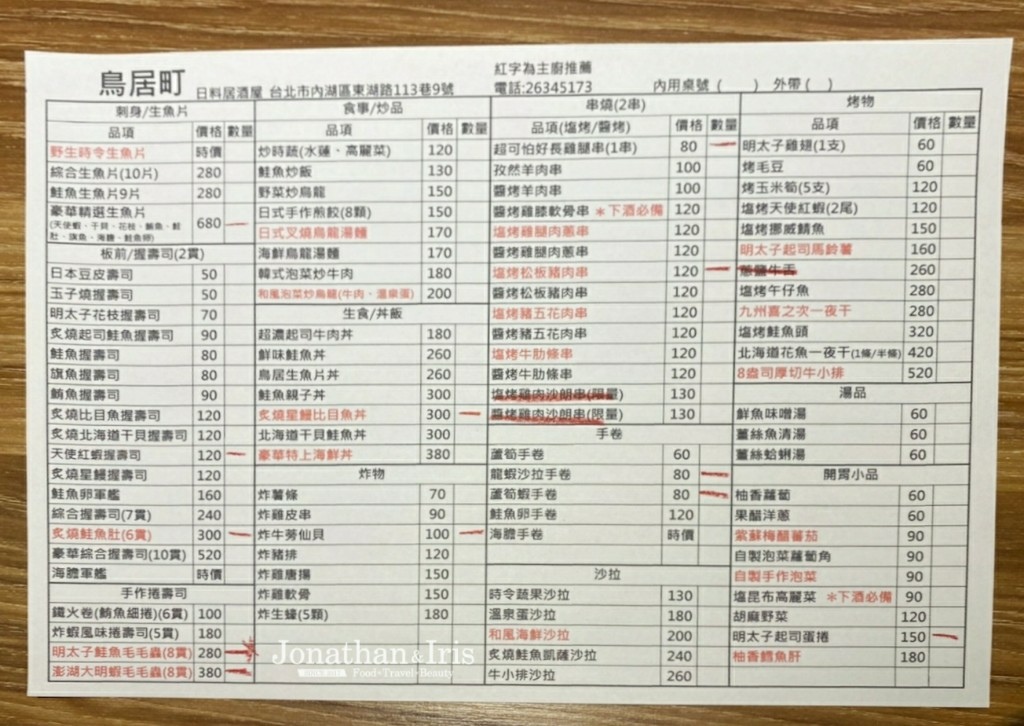 鳥居町
日料居酒屋 台北市內湖區東湖路113巷9號
紅字為主廚推薦
電話:26345173
內用桌號 ( ) 外帶 ( )
刺身/生魚片
品項 價格 數量
野生時令生魚片 時價
綜合生魚片(10片) 280
鮭魚生魚片9片 280
豪華精選生魚片 680
(天使蝦、干貝、花枝、鮪魚、鮭
肚、旗魚、海膽、鮭魚卵)
板前/握壽司(2貫)
日本豆皮壽司 50
玉子燒握壽司 50
明太子花枝握壽司 70
炙燒起司鮭魚握壽司 90
鮭魚握壽司 80
旗魚握壽司 80
鮪魚握壽司 90
炙燒比目魚握壽司 120
炙燒北海道干貝握壽司 120
天使紅蝦握壽司 120
炙燒星鰻握壽司 120
鮭魚卵軍艦 160
綜合握壽司(7貫) 240
炙燒鮭魚肚(6貫) 300
豪華綜合握壽司(10貫) 520
海膽軍艦 時價
手作捲壽司
鐵火卷(鮪魚細捲)(6貫) 100
炸蝦風味捲壽司(5貫) 180
明太子鮭魚毛毛蟲(8貫) 280
澎湖大明蝦毛毛蟲(8貫) 380
食事/炒品
品項 價格 數量
炒時蔬(水蓮、高麗菜) 120
鮭魚炒飯 130
野菜炒烏龍 150
日式手作煎餃(8顆) 150
日式叉燒烏龍湯麵 170
海鮮烏龍湯麵 170
韓式泡菜炒牛肉 180
和風泡菜炒烏龍(牛肉、溫泉蛋) 200
生食/丼飯
超濃起司牛肉丼 180
鮮味鮭魚丼 260
鳥居生魚片丼 260
鮭魚親子丼 300
炙燒星鰻比目魚丼 300
北海道干貝鮭魚丼 300
豪華特上海鮮丼 380
炸物
炸薯條 70
炸雞皮串 90
炸牛蒡仙貝 100
炸豬排 120
炸雞唐揚 150
炸雞軟骨 150
炸生蠔(5顆) 180
串燒(2串)
品項(塩烤/醬烤) 價格 數量
超可怕好長雞腿串(1串) 80
孜然羊肉串 100
醬烤羊肉串 100
醬烤雞膝軟骨串 *下酒必備 120
塩烤雞腿肉蔥串 120
醬烤雞腿肉蔥串 120
塩烤松板豬肉串 120
醬烤松板豬肉串 120
塩烤豬五花肉串 120
醬烤豬五花肉串 120
塩烤牛肋條串 120
醬烤牛肋條串 120
塩烤雞肉沙朗串(限量) 130
醬烤雞肉沙朗串(限量) 130
手卷
蘆筍手卷 60
龍蝦沙拉手卷 80
蘆筍蝦手卷 80
鮭魚卵手卷 120
海膽手卷 時價
沙拉
時令蔬果沙拉 130
溫泉蛋沙拉 180
和風海鮮沙拉 200
炙燒鮭魚凱薩沙拉 240
牛小排沙拉 260
烤物
品項 價格 數量
明太子雞翅(1支) 60
烤毛豆 60
烤玉米筍(5支) 120
塩烤天使紅蝦(2尾) 120
塩烤挪威鯖魚 150
明太子起司馬鈴薯 160
蔥鹽牛舌 260
塩烤午仔魚 280
九州喜之次一夜干 280
塩烤鮭魚頭 320
北海道花魚一夜干(1條/半條) 420
8盎司厚切牛小排 520
湯品
鮮魚味噌湯 60
薑絲魚清湯 60
薑絲蛤蜊湯 60
開胃小品
柚香蘿蔔 60
果醋洋蔥 60
紫蘇梅醋蕃茄 90
自製泡菜蘿蔔角 90
自製手作泡菜 90
塩昆布高麗菜 *下酒必備 90
胡麻野菜 120
明太子起司蛋捲 150
柚香鱈魚肝 180
Jonathan & Iris
Food•Travel•Beauty